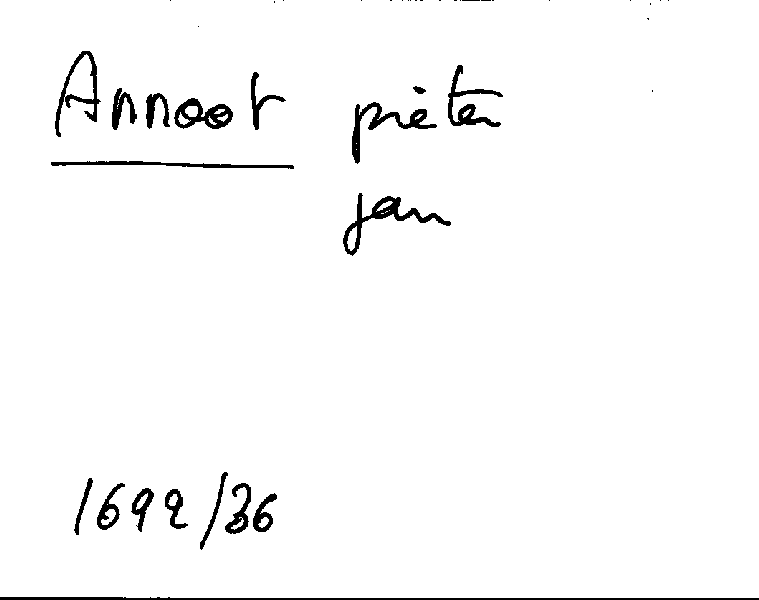 Annoot pieter
jan
1692/36